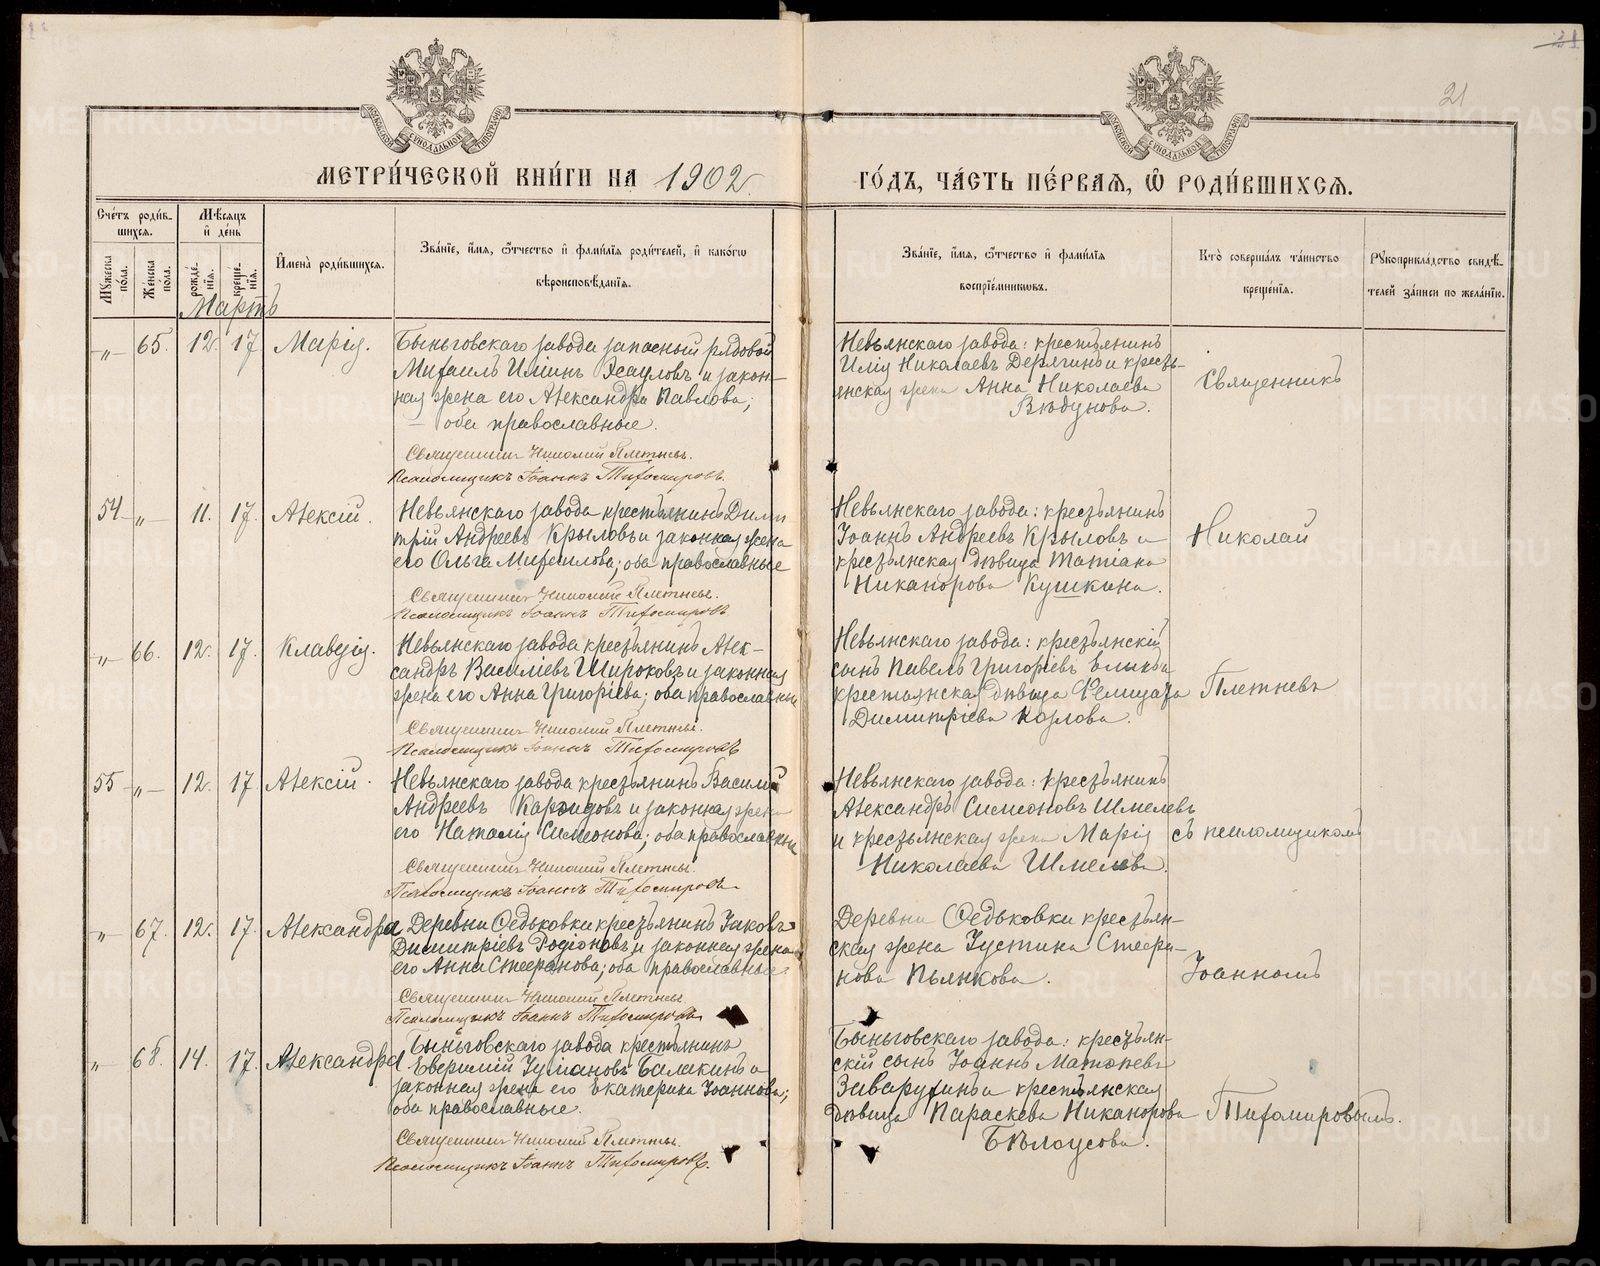 21
21
МЕТРИ́ЧЕСКОЙ КНИ́ГИ НА 1902
ГО́ДЪ, ЧА́СТЬ ПЕ́РВАЯ, Ѡ РОДИ́ВШИХСЯ.
Сче́тъ роди́в-
шихся.
Мѣ́сяцъ
и҆ де́нь
Мꙋ́жеска
по́ла.
Же́нска
по́ла.
рожде́-
нїѧ.
креще́-
нїѧ.
И҆мена̀ роди́вшихся.
Зва́нїе, и҆́мя, ѻ҆́тчество и҆ фами́лїя роди́телей, и҆ како́гѡ
вѣроисповѣ́данїя.
Зва́нїе, и҆́мя, ѻ҆́тчество и҆ фами́лїя
воспрїе́мникѡвъ.
Кто̀ соверша́лъ та́инство
креще́нїя.
Рꙋкоприкла́дство свидѣ́-
телей за́писи по жела́нїю.
Мартъ
„ 65. 12. 17 Марія.
Быньговскаго завода запасный рядовой
Михаилъ Ильинъ Эсауловъ и закон-
ная жена его Александра Павлова;
оба православные.
Священникъ Николай Плетневъ.
Псаломщикъ Іоаннъ Тихомировъ.
Невьянскаго завода: крестьянинъ
Илія Николаевъ Дерягинъ и кресть-
янская жена Анна Николаева
Вѣдунова.
Священникъ
54 „ 11. 17. Алексій.
Невьянскаго завода крестьянинъ Дими
трій Андреевъ Крыловъ и законная жена
его Ольга Михаилова; оба православные
Священникъ Николай Плетневъ.
Псаломщикъ Іоаннъ Тихомировъ
Невьянскаго завода: крестьянинъ
Іоаннъ Андреевъ Крыловъ и
крестьянская дѣвица Татіана
Никанорова Кушкина.
Николай
„ 66. 12. 17. Клавдія.
Невьянскаго завода крестьянинъ Алек-
сандръ Василіевъ Широковъ и законная
жена его Анна Григоріева; оба православны
Священникъ Николай Плетневъ.
Псаломщикъ Іоаннъ Тихомировъ
Невьянскаго завода: крестьянскій
сынъ Павелъ Григоріевъ
крестьянская дѣвица Фелицата
Димитріева Козлова.
Плетневъ
55 „ 12. 17. Алексій.
Невьянскаго завода крестьянинъ Василій
Андреевъ и законная жена
его Наталія Симеонова; оба православны
Священникъ Николай Плетневъ.
Псаломщикъ Іоаннъ Тихомировъ
Невьянскаго завода: крестьянинъ
Александръ Симеоновъ Шмелевъ
и крестьянская жена Марія
Николаева Шмелева.
съ псаломщикомъ
„ 67. 12. 17. Александра
Деревни Федьковки крестьянинъ Іаковъ
Димитріевъ Родіоновъ и законная жена
его Анна Стефанова; оба православные
Священникъ Николай Плетневъ
Псаломщикъ Іоаннъ Тихомировъ
Деревни Федьковки крестьян-
ская жена Іустина Стефа-
нова Пьянкова.
Іоанномъ
„ 68. 14. 17. Александра
Быньговскаго завода крестьянинъ
Евфимій Іуліановъ Балакинъ и
законная жена его Екатерина Іоаннова;
оба православные.
Священникъ Николай Плетневъ.
Псаломщикъ Іоаннъ Тихомировъ.
Быньговскаго завода: крестьян-
скій сынъ Іоаннъ Матѳеевъ
Заварухинъ и крестьянская
дѣвица Параскева Никанорова
Бѣлоусова.
Тихомировымъ.